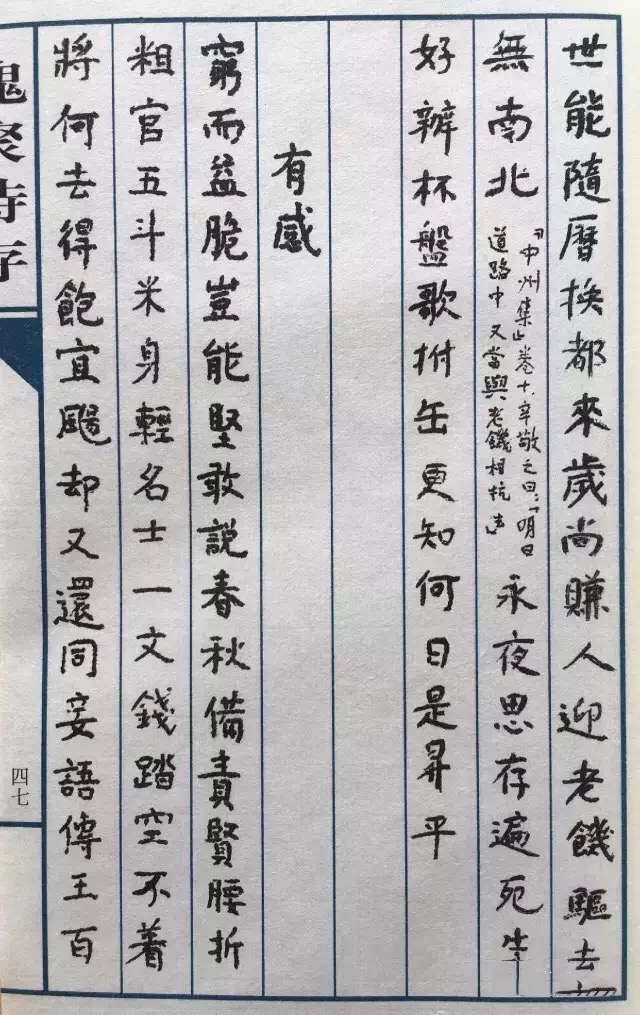 世能隨曆換都來歲尚賺人迎老饑驅去
無南北
『中州集』卷十辛敬之曰：「明日
道路中又當與老饑相抗去」
永夜思存遍死生
好辦杯盤歌拊缶更知何日是昇平
有感
窮而益脆豈能堅敢說春秋備責賢腰折
粗官五斗米身輕名士一文錢踏空不着
將何去得飽宜颺却又還同妄語傳王百
槐聚詩存
四七